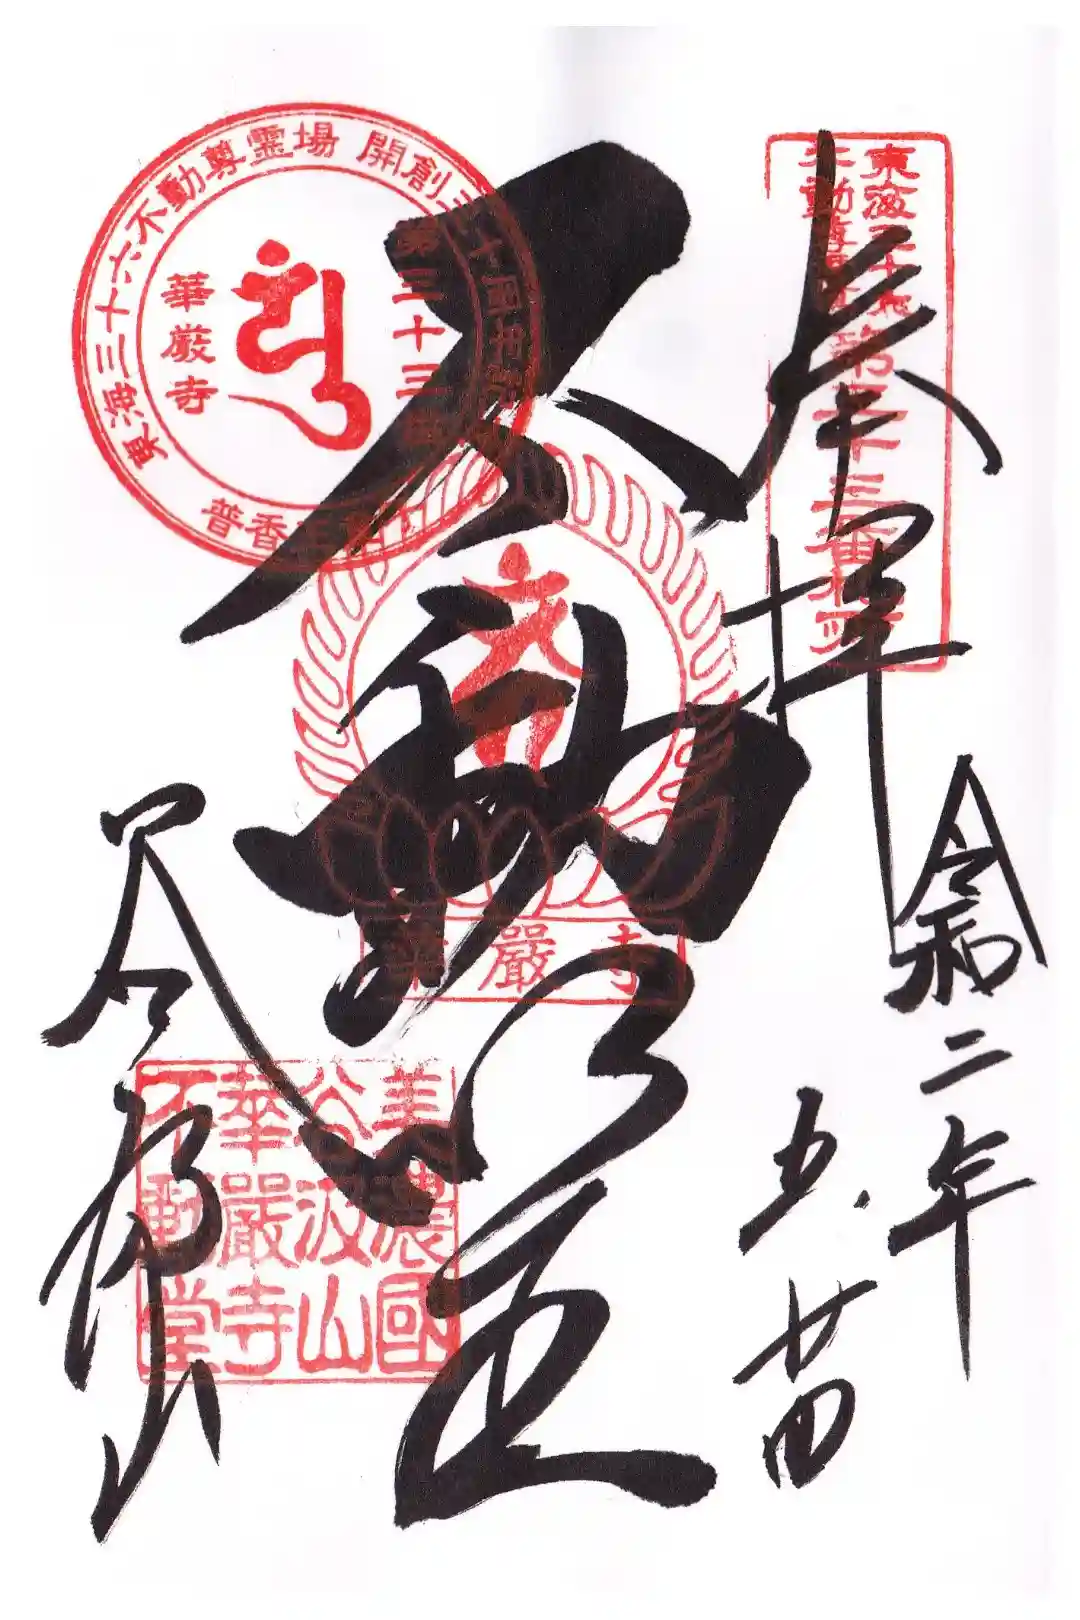 奉拝
令和二年
五.廿四
不動明王
谷汲山
東海三十六不動尊霊場
第三十三番札所
東海三十六不動尊霊場 開創三十周年
第三十三番
華厳寺
華嚴寺
美濃國
谷汲山
華嚴寺
不動堂